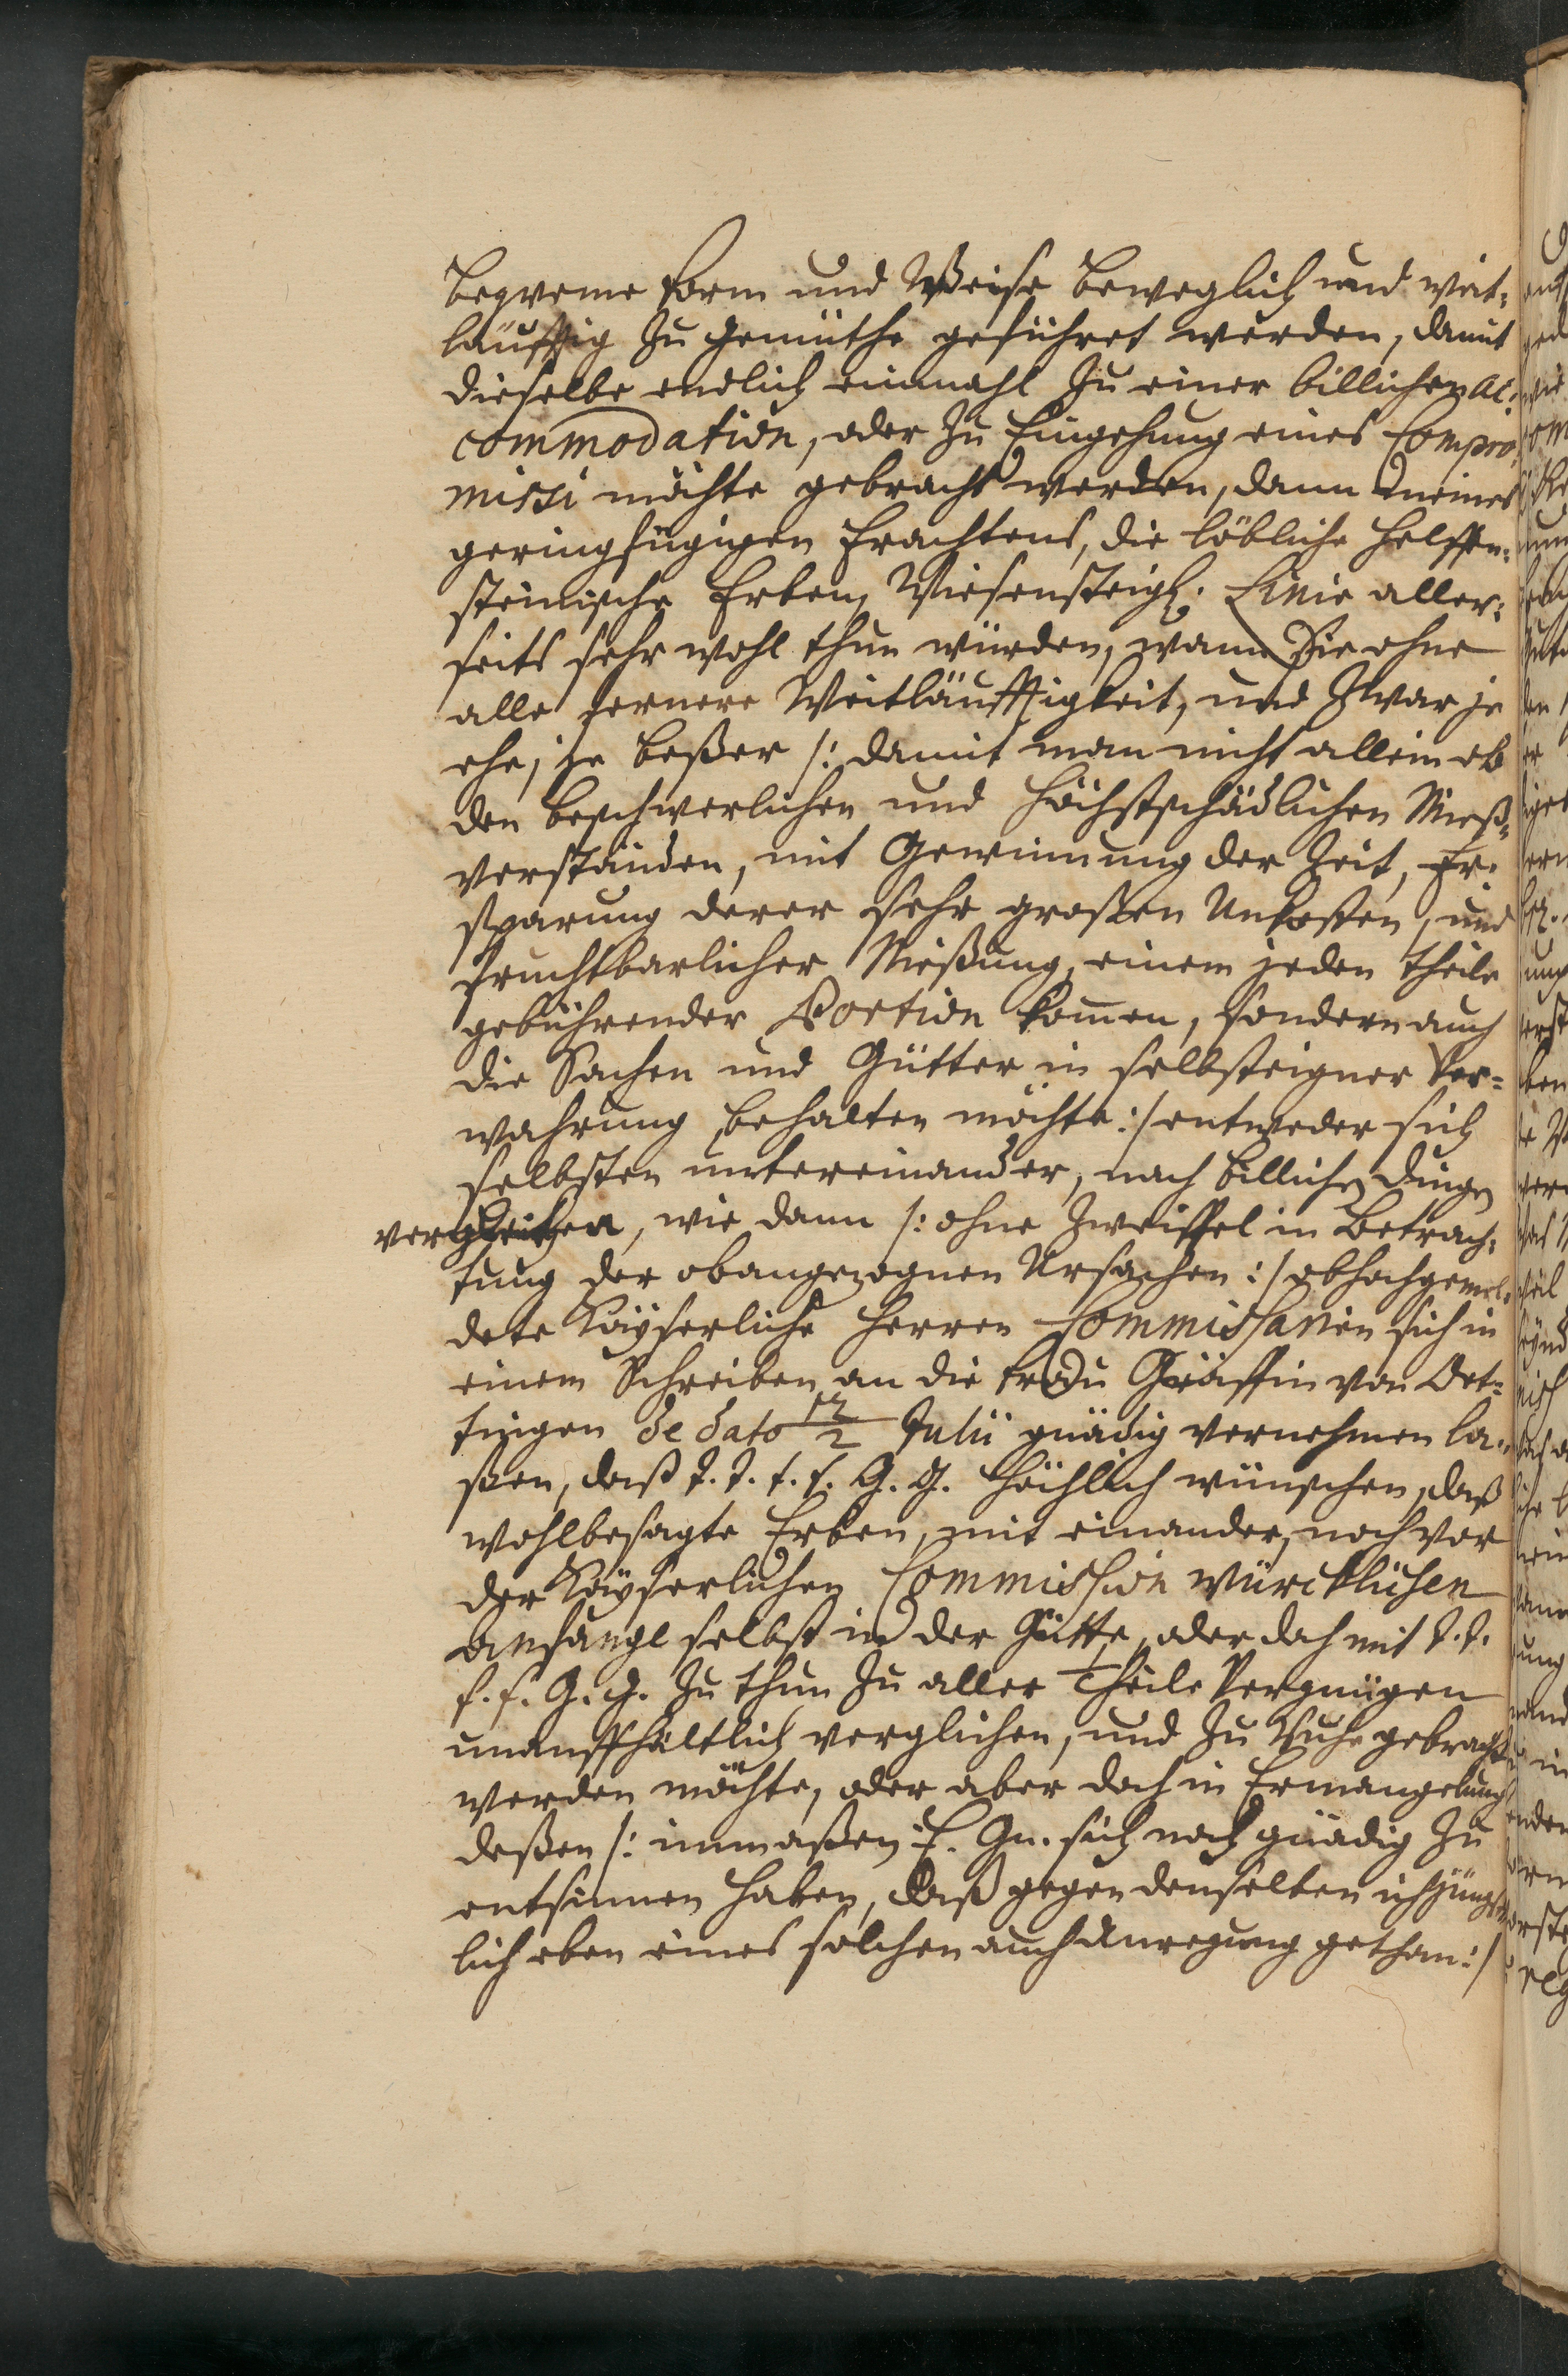 beqveme Form und Weise beweglich und weit-
läuffig zu Gemüthe geführet werden, damit
dieselbe endlich einmahl zu einer billichen Ac-
commodation, oder zu Eingehung eines Compro-
missi möchte gebracht werden, dann meines
geringfügigen Erachtens, die löbliche Helffen-
steinische Erben, Wiesensteigl. Linie aller-
seits sehr wohl thun würden, wann Sie ohne
alle fernere Weitläufftigkeit, und zwar je
ehe, je beßer /: damit man nicht allein ab
den beschwerlichen und höchstschädlichen Mieß-
verständen, mit Gewinnung der Zeit, Er-
sparung derer sehr großen Unkosten, und
fruchtbarlicher Nießung, einem jeden Theile
gebührender Portion kommen, sondern auch
die Sachen und Gütter in selbsteigner Ver-
wahrung behalten möchte :/ entweder sich
selbsten untereinander, nach billichen dingen
vergleichen, wie dann /: ohne Zweiffel in Betrach-
tung der obangezognen Ursachen :/ obhochgemel-
dete Käyserliche Herren Commissarien sich in
einem Schreiben an die Frau Gräffin von Oet-
tingen de dato 12/2 Julii gnädig vernehmen la-
ßen, daß J. J. f. f. G. G. höchlich wünschen, daß
wohlbesagte Erben, mit einander, noch vor
der Käyserlichen Commission würcklichen
Anfange selbst in der Gütte, oder doch mit J. J.
f. f. G. G. zu thun zu aller Theile Vergnügen
unauffhältlich verglichen, und zu Ruhe gebracht
werden möchte, oder aber doch in Ermangelung
deßen /: inmaßen E. Gn. sich noch gnädig zu
entsinnen haben, daß gegen denselben ich jüngst-
lich eben eines solchen auch Anregung gethan :/